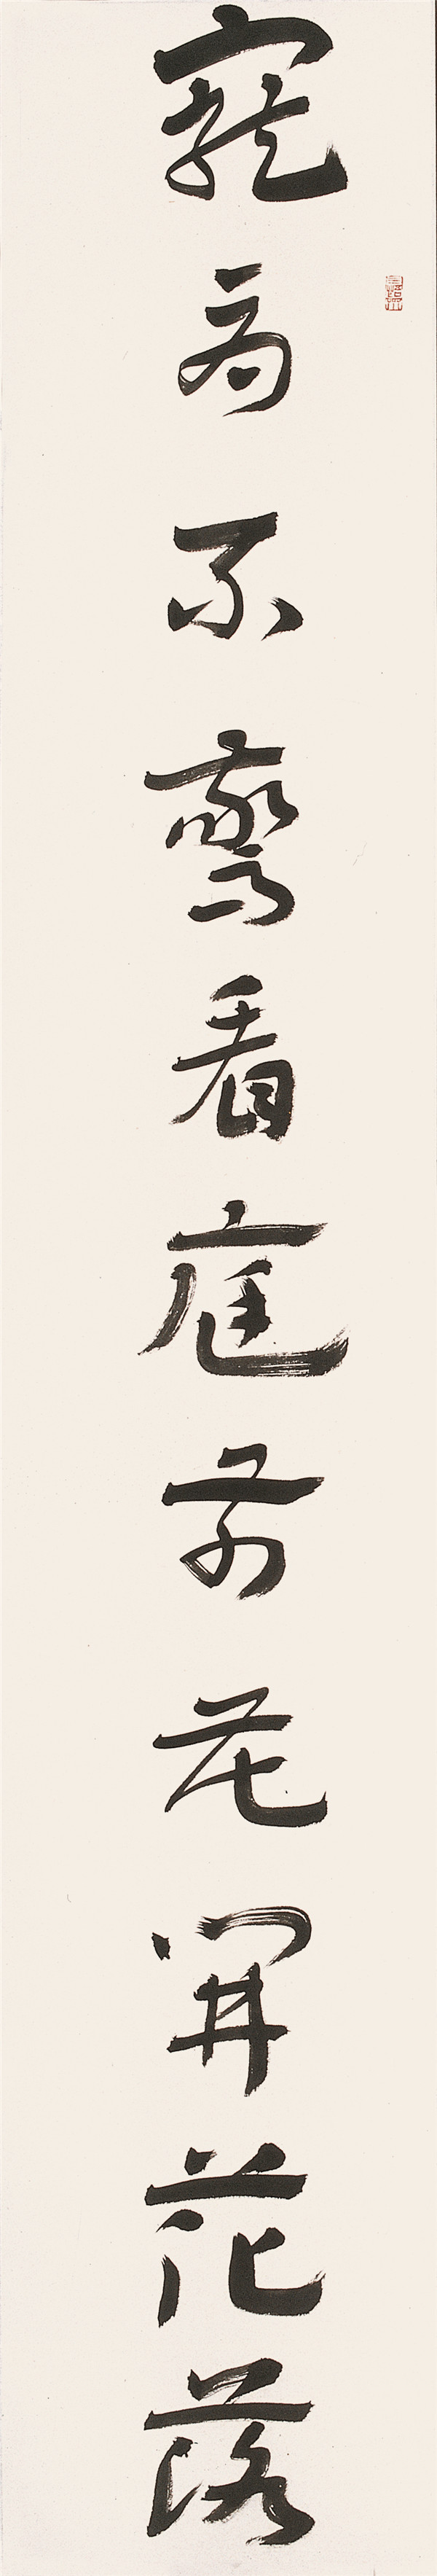 寵辱不驚看庭前花開花落